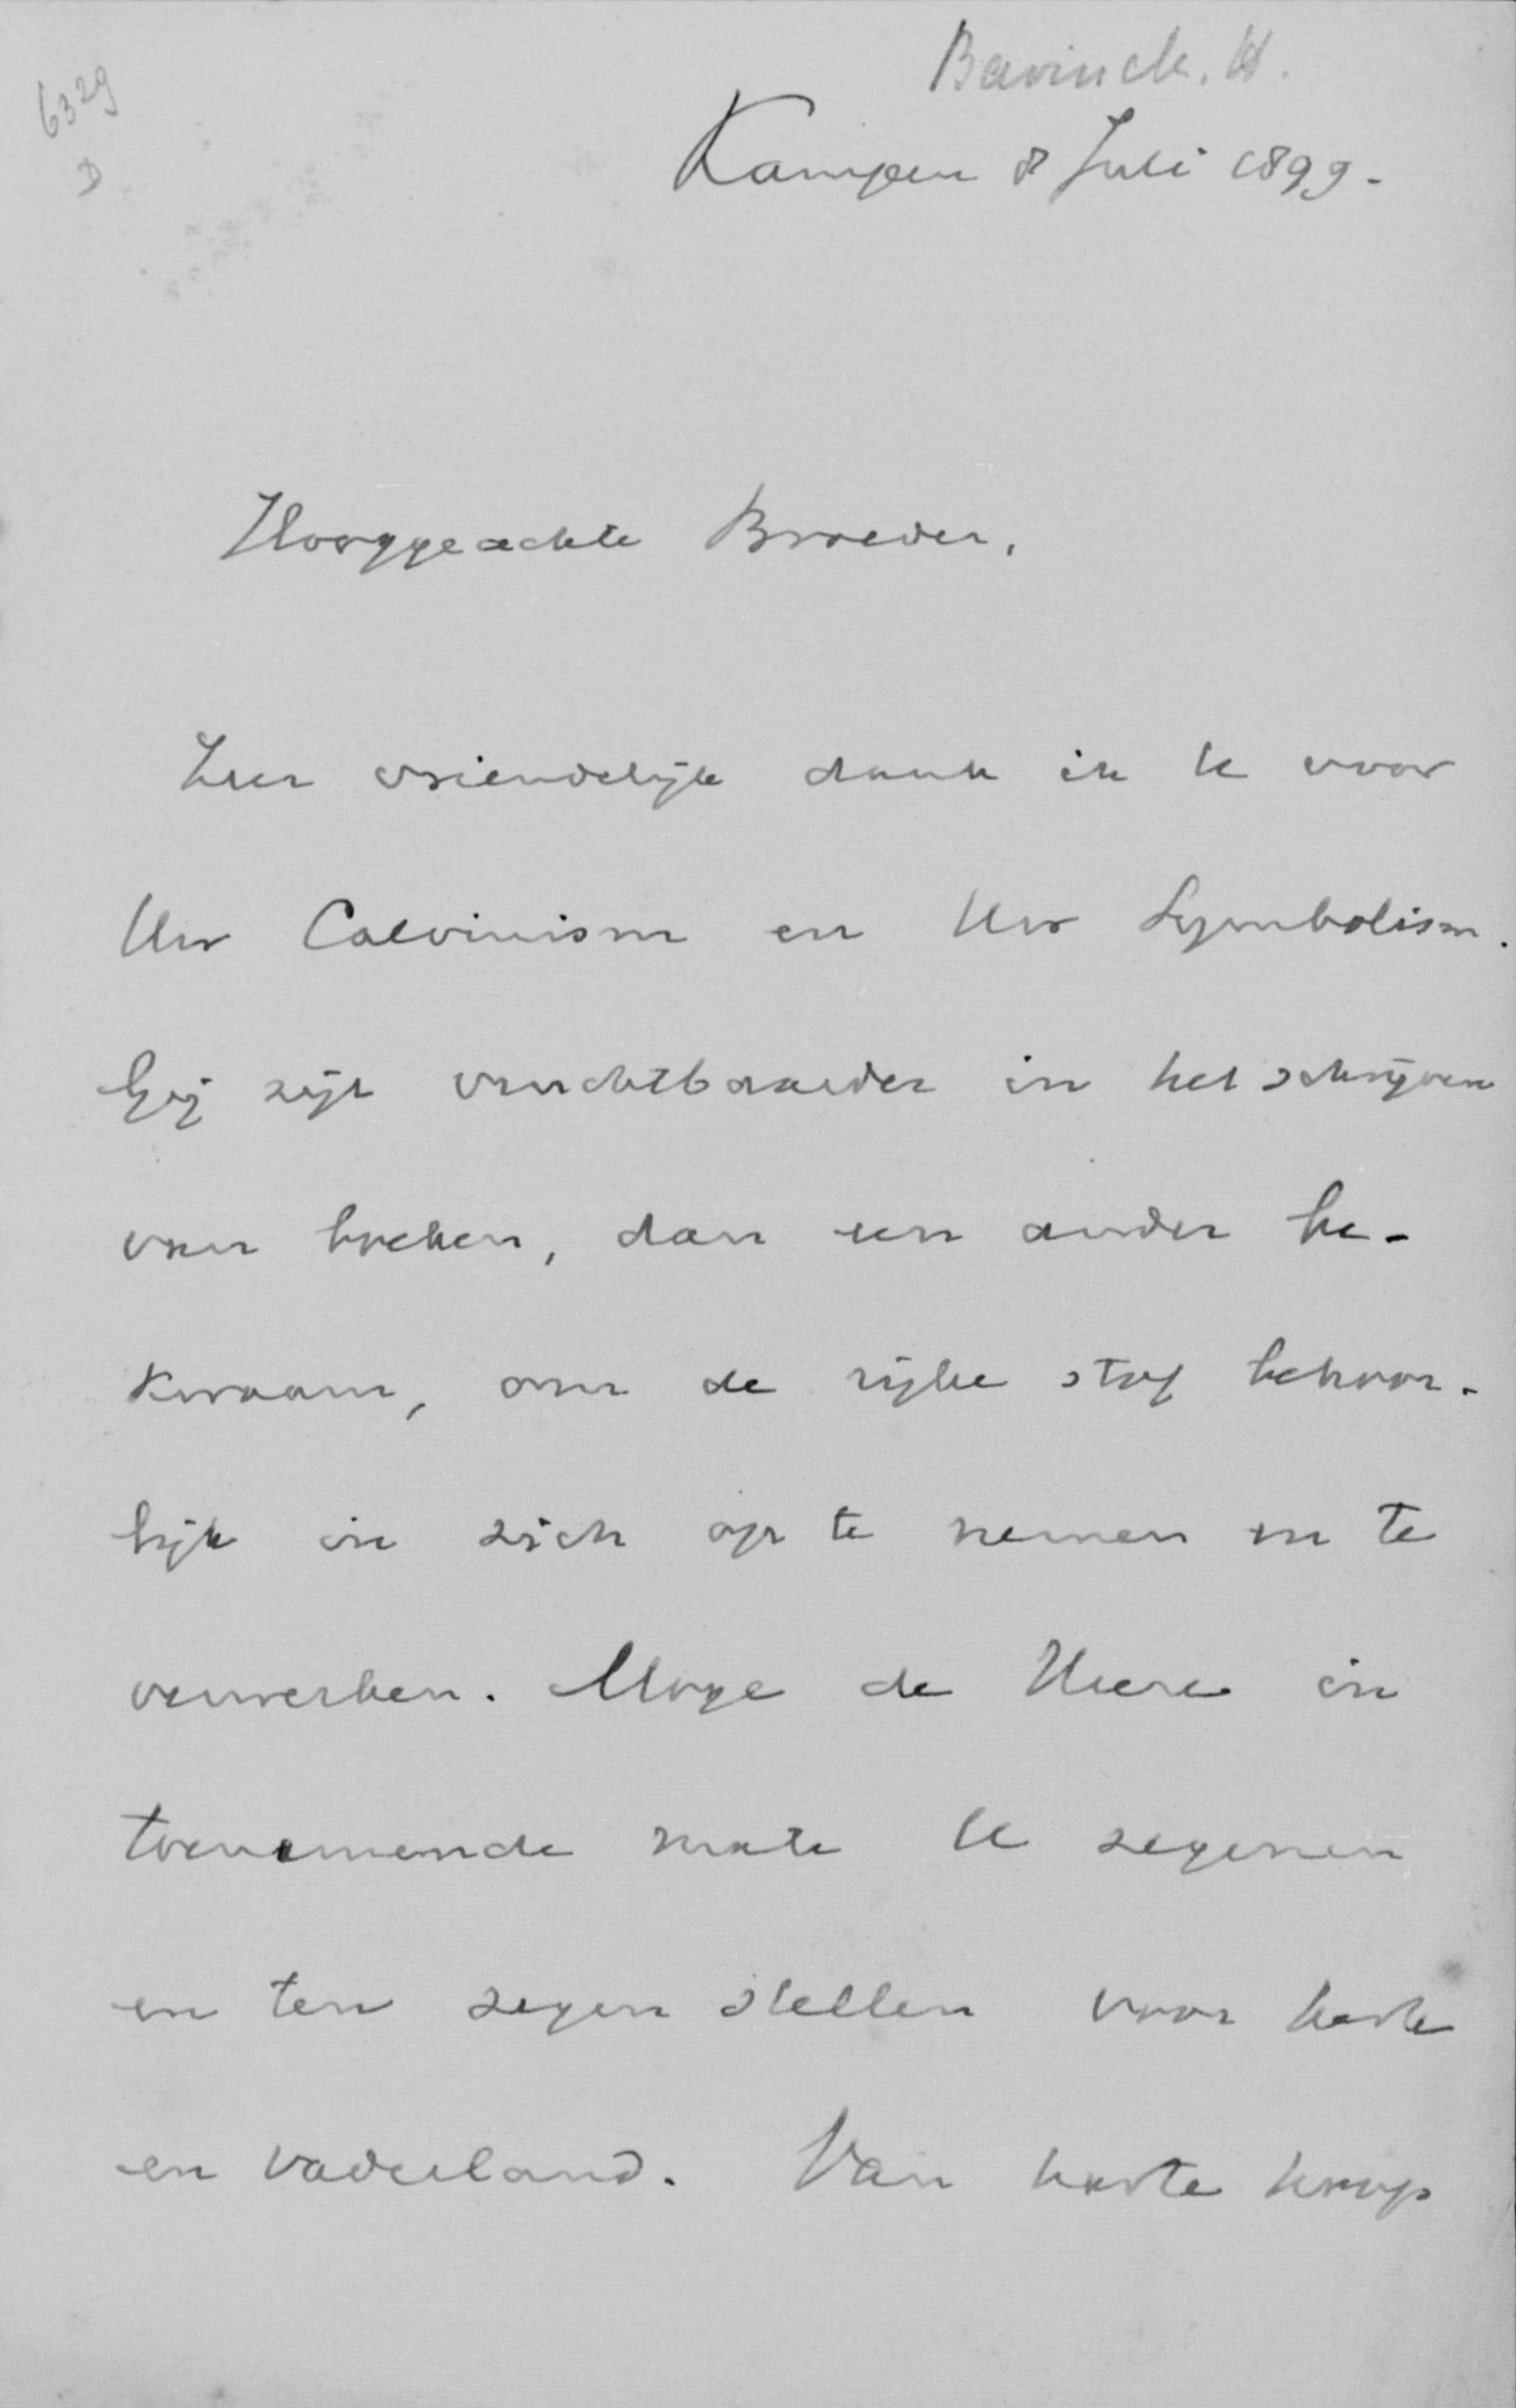 Bavinck. H.
6329
D
Kampen 8 Juli 1899.
Hooggeachte Broeder,
Zeer vriendelijk dank ik U voor
Uw Calvinism en Uw Symbolism.
Gij zijt vruchtbaarder in het schrijven
van boeken, dan een ander be-
kwaam, om de rijke stof behoor-
lijk in zich op te nemen en te
verwerken. Moge de Heere in
toenemende mate U zegenen
en ten zegen stellen voor kerk
en vaderland. Van harte hoop